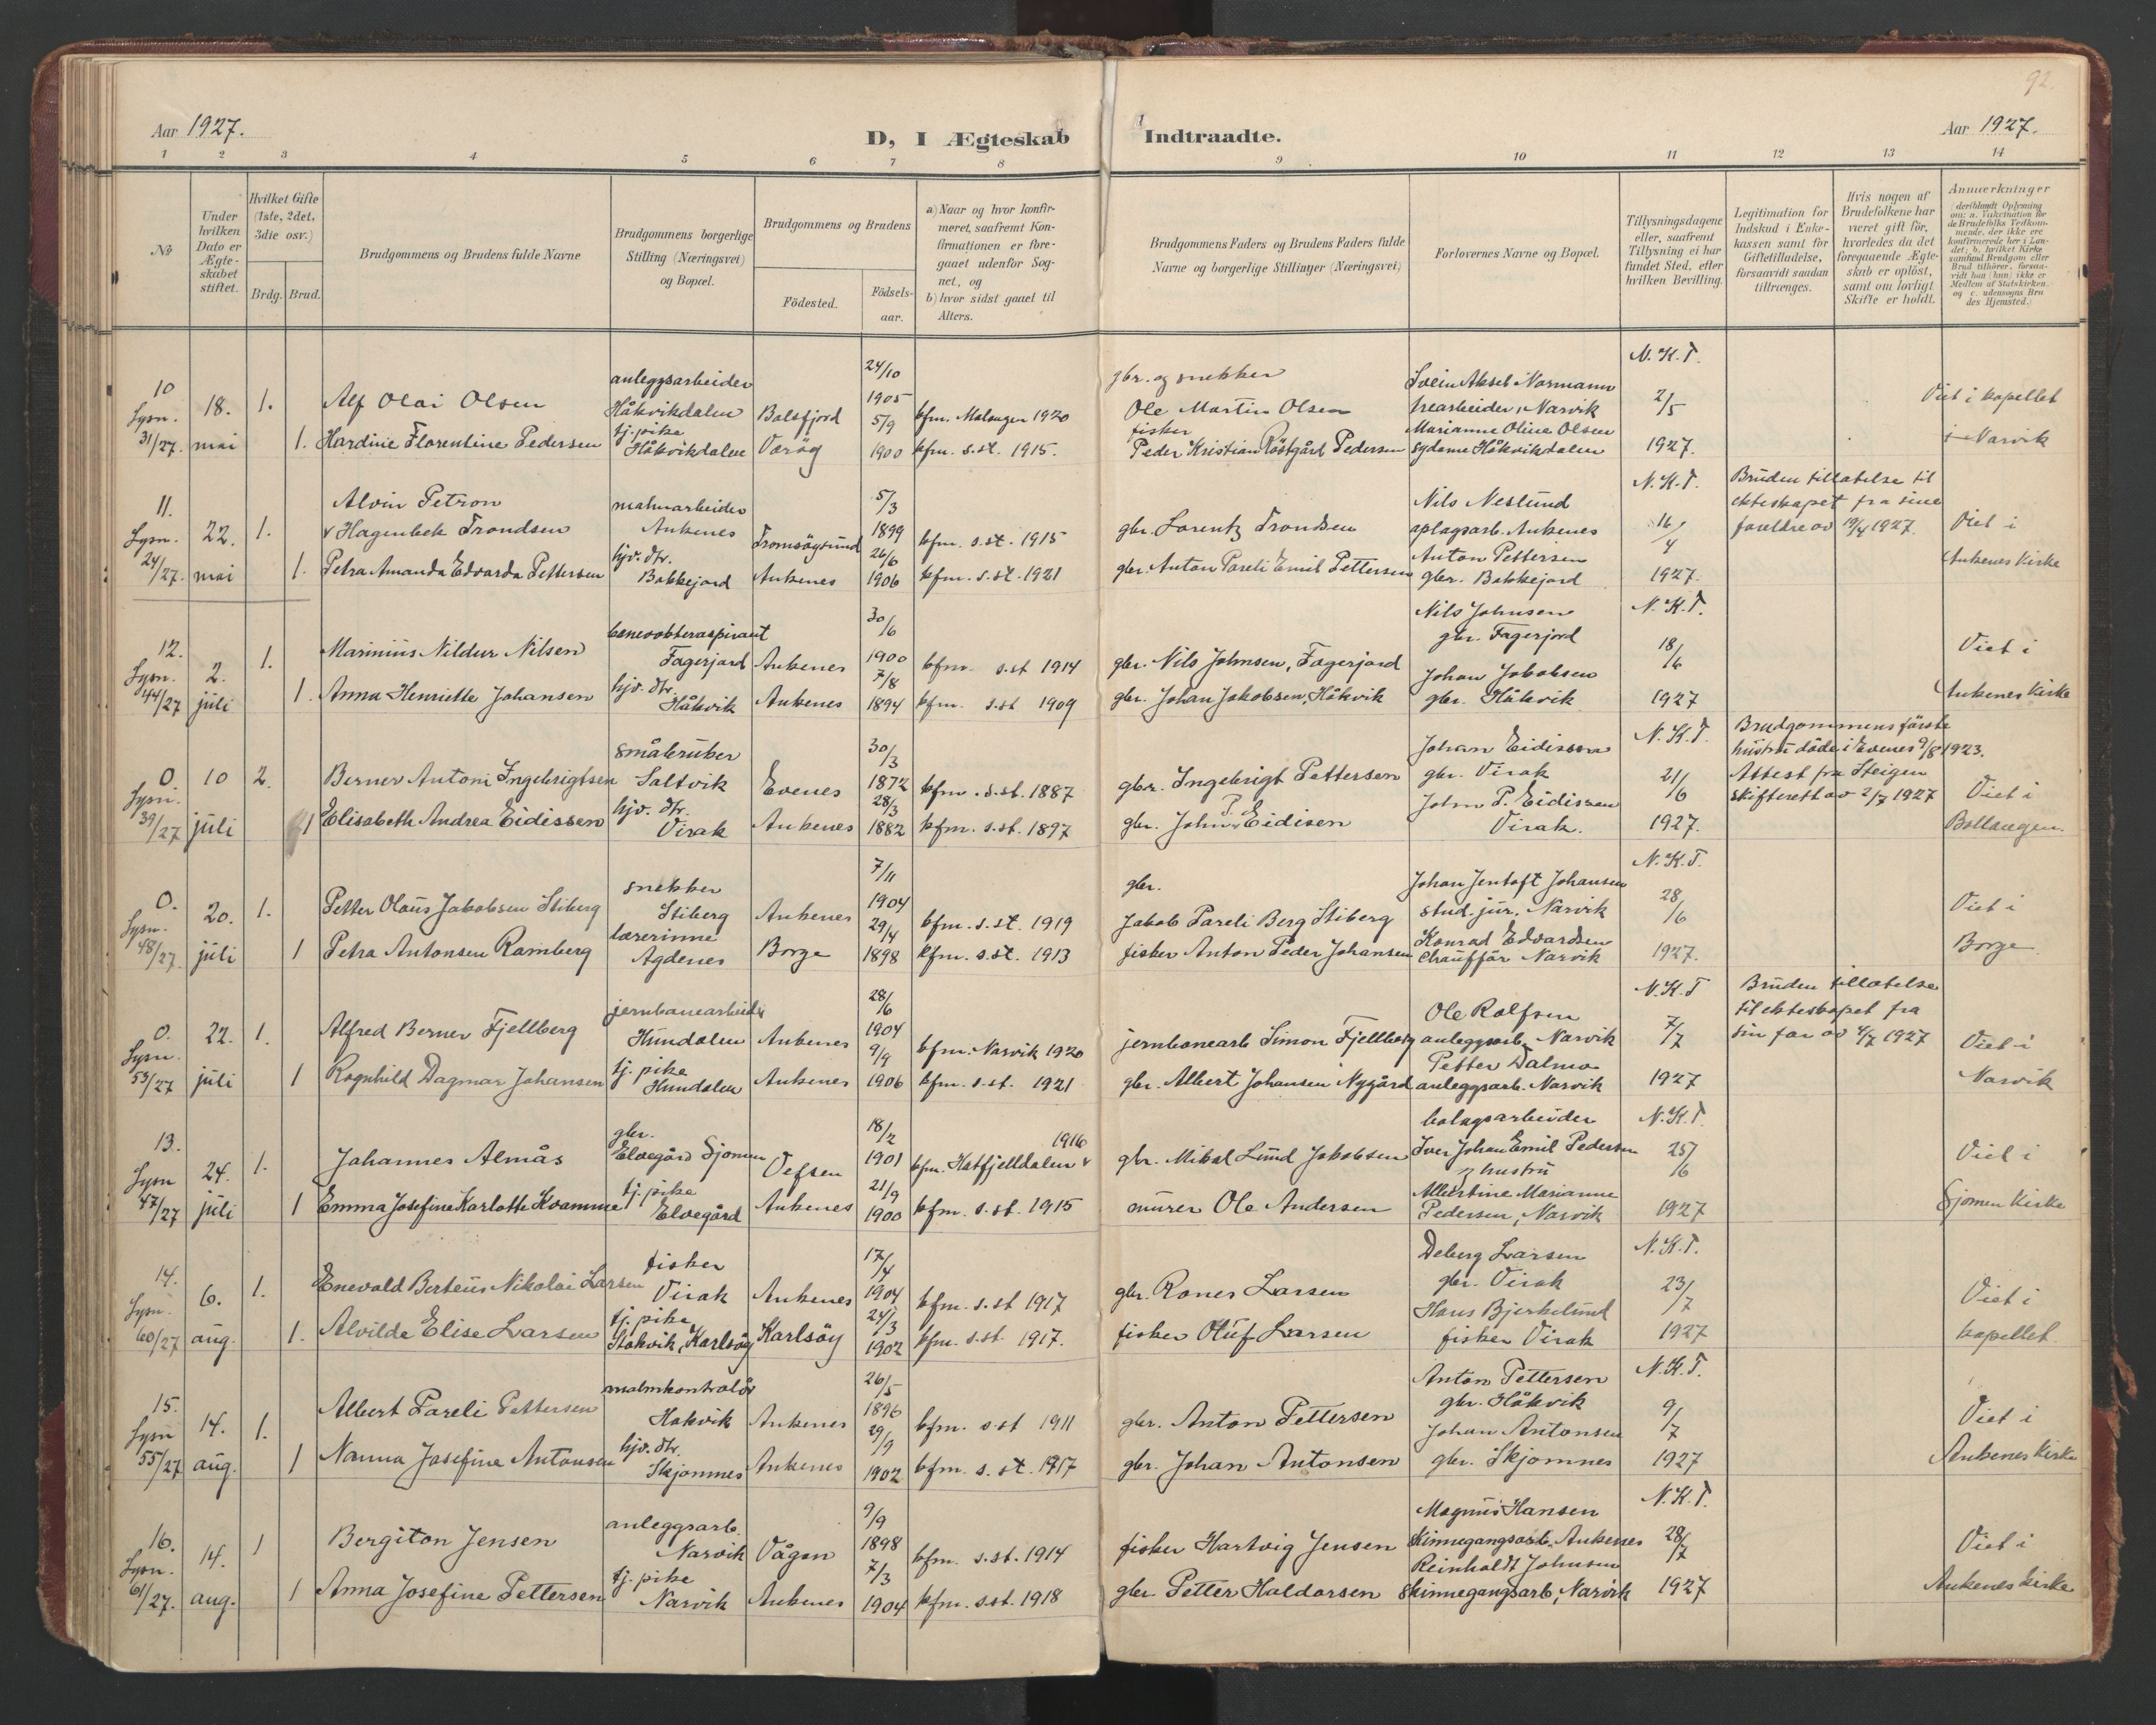 92
Aar 1927.
D, I Ægteskab Indtraadte.
Aar 1927.
1 2 3 4 5 6 7 8 9 10 11 12 13 14
No
Under hvilken Dato er Ægteskabet stiftet.
Hvilket Gifte (1ste, 2det, 3die osv.)
Brdg. Brud.
Brudgommens og Brudens fulde Navne
Brudgommens borgerlige Stilling (Næringsvei) og Bopæl.
Brudgommens og Brudens
Födested.
Födsels-aar.
a) Naar og hvor konfirmeret, saafremt Konfirmationen er foregaaet udenfor Sognet, og
b) hvor sidst gaaet til Alters.
Brudgommens Faders og Brudens Faders fulde Navne og borgerlige Stillinger (Næringsvei)
Forlovernes Navne og Bopæl.
Tillysningsdagene eller, saafremt Tillysning ei har fundet Sted, efter hvilken Bevilling.
Legitimation for Indskud i Enkekassen samt for Giftetilladelse, forsaavidt saadan tiltrænges.
Hvis nogen af Brudefolkene har været gift för, hvorledes da det foregaaende Ægteskab er oplöst, samt om lovligt Skifte er holdt.
Anmærkninger (deriblandt Oplysning om: a. Vakcination for de Brudefolks Vedkommende, der ikke ere konfirmerede her i Landet; b. hvilket Kirkesamfund Brudgom eller Brud tilhörer, forsaavidt han (hun) ikke er Medlem af Statskirken. og c. udensogns Brudes Hjemsted.)
10 Lysn. 31/27. 18. mai 1. Alf Olai Olsen anleggsarbeider Håkvikdalen Balsfjord 24/10 1905 kfm. Malangen 1920 gbr. og snekker Ole Martin Olsen Svein Aksel Normann trearbeider, Narvik N.K.T. 2/5 1927. Viet i kapellet i Narvik
1. Hardine Florentine Pedersen tj. pike Håkvikdalen Væröy 5/9 1900 kfm. s.st. 1915. fisker Peder Kristian Röstgård Pedersen Marianne Oline Olsen sydame Håkvikdalen
11. Lysn. 24/27. 22. mai 1. Alvin Petron v Hagenbek Trondsen malmarbeider Ankenes Tromsöysund 5/3 1899 kfm. s.st. 1915 gbr. Lorentz Trondsen Nils Neslund Ankenes N.K.T. 16/4 1927. Bruden tillatelse til ekteskapet fra sine foreldre av 19/4 1927. Viet i Ankenes Kirke
1. Petra Amanda Edvarda Pettersen hjv. dtr. Bakkejord Ankenes 26/6 1906 kfm. s.st. 1921 gbr. Anton Pareli Emil Pettersen Anton Pettersen gbr. Bakkejord
12. Lysn. 44/27 2. juli 1. Marinius Nildur Nilsen banevokteraspirant Fagerjord Ankenes 30/6 1900 kfm. s.st 1914 gbr. Nils Johnsen, Fagerjord Nils Johnsen gbr. Fagerjord N.K.T. 18/6 1927 Viet i Ankenes Kirke
1. Anna Henriette Johansen hjv. dtr. Håkvik Ankenes 7/8 1894 kfm. s.st 1909 gbr. Johan Jakobsen, Håkvik Johan Jakobsen gbr. Håkvik
0. Lysn. 39/27 10 juli 2. Berner Antoni Ingebrigtsen småbruker Saltvik Evenes 30/3 1872 kfm. s.st. 1887 gbr. Ingebrigt Pettersen Johan Eidissen gbr. Virak N.K.T. 21/6 1927. Brudgommens første hustru döde i Evenes 9/8 1923. Attest fra Steigen skifterett av 2/7 1927 Viet i Ballangen.
1 Elisabeth Andrea Eidissen hjv. dtr. Virak Ankenes 28/3 1882 kfm. s.st. 1897 gbr. John P. Eidisen John P. Eidissen Virak.
0. Lysn. 48/27. 20. juli 1. Petter Olaus Jakobsen Stiberg snekker Stiberg Ankenes 7/11 1904 kfm. s.st. 1919 gbr. Jakob Pareli Berg Stiberg Johan Jentoft Johansen stud. jur. Narvik N.K.T. 28/6 1927. Viet i Borge
1 Petra Antonsen Ramberg lærerinne Agdenes Borge 29/4 1898 kfm. s.st. 1913 fisker Anton Peder Johansen Konrad Edvardsen Chauffør Narvik
0. Lysn. 53/27 22. juli 1. Alfred Berner Fjellberg jernbanearbeider Hundalen Ankenes 28/6 1904 kfm. Narvik 1920 jernbanearb Simon Fjellberg Ole Rolfsen anleggsarb. Narvik N.K.T 7/7 1927 Bruden tillatelse til ekteskapet fra sin far av 4/7 1927 Viet i Narvik
1 Ragnhild Dagmar Johansen tj. pike Hundalen Ankenes 9/9 1906 kfm. s.st. 1921 gbr. Albert Johansen Nygård Petter Dalmo anleggsarb. Narvik
13. Lysn 47/27 24. juli 1. Johannes Almås gbr. Elvegård Sjomen Vefsen 18/2 1901 kfm. Hatfjelldalen 1916 gbr. Mikal Lund Jakobsen bolagsarbeider Iver Johan Emil Pedersen og hustru N.K.T. 25/6 1927 Viet i Sjomen Kirke
1 Emma Josefine Karlotte Kvamme tj. pike Elvegård Ankenes 21/9 1900 kfm. s.st. 1915 murer Ole Andersen Albertine Marianne Pedersen, Narvik
14. Lysn. 60/27 6. aug. 1. Enevald Berteus Nikolai Larsen fisker Virak Ankenes 17/4 1904 kfm. s.st 1917 gbr. Raner Larsen Deberg Larsen gbr. Virak N.K.T. 23/7 1927 Viet i kapellet.
1. Alvilde Elise Larsen tj. pike Karlsöy Karlsöy 24/3 1902 kfm. s.st. 1917. fisker Oluf Larsen Hans Bjerkelund fisker Virak
15. Lysn 55/27 14. aug. 1. Albert Pareli Pettersen malmkontrolör Håkvik Ankenes 26/5 1896 kfm. s.st 1911 gbr. Anton Pettersen Anton Pettersen gbr. Håkvik N.K.T. 9/7 1927 Viet i Ankenes Kirke
1 Nanna Josefine Antonsen hjv. dtr. Skjomnes Ankenes 29/9 1902 kfm. s.st. 1917 gbr. Johan Antonsen Johan Antonsen gbr. Skjomnes
16. Lysn. 61/27. 14. aug. 1 Bergiton Jensen anleggsarb. Narvik Vågan 9/9 1898 kfm. s.st. 1914 fisker Hartvig Jensen Magnus Hansen Skinnegangsarb. Ankenes N.K.T. 28/7 1927 Viet i Ankenes Kirke
1 Anna Josefine Pettersen tj. pike Narvik Ankenes 7/3 1904 kfm. s.st. 1918 gbr Petter Haldorsen Reinholdt Johnsen Skinnegangsarb, Narvik